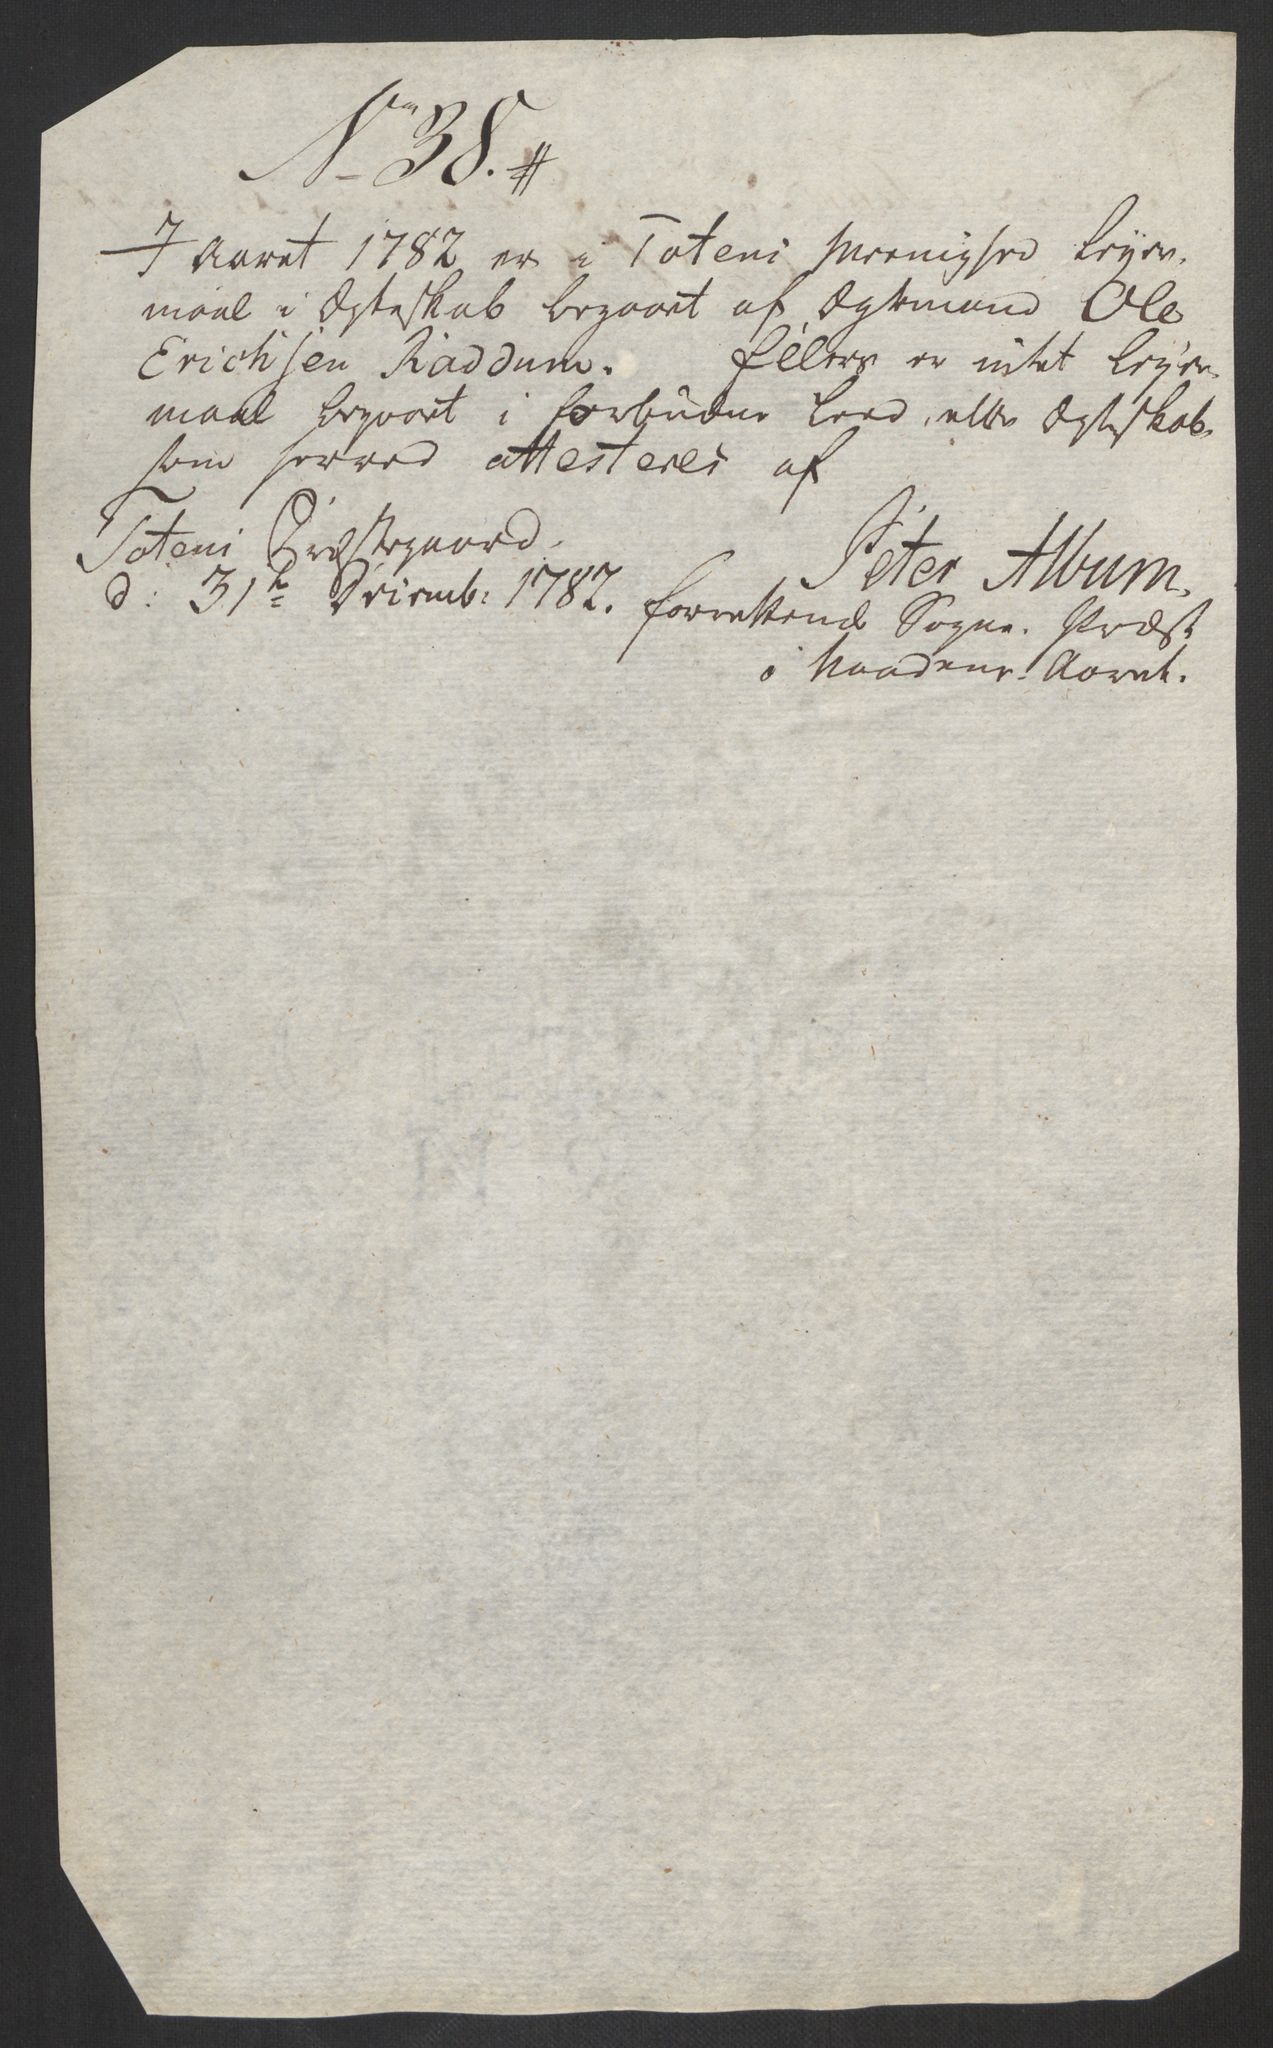 No 38. #
I Aaret 1782 er i Totens Meenighed Leyer-
maal i Ægteskab begaaet af Ægtemand Ole
Erichsen Raddum. Ellers er intet Leyer-
maal begaaet i forbudne Leed, eller Ægteskab,
som herved attesteres af
Totens Præstegaard,
d: 31te Decemb: 1782.
Peter Album.
forrettende Sogne-Præst
i Naadens-Aaret.